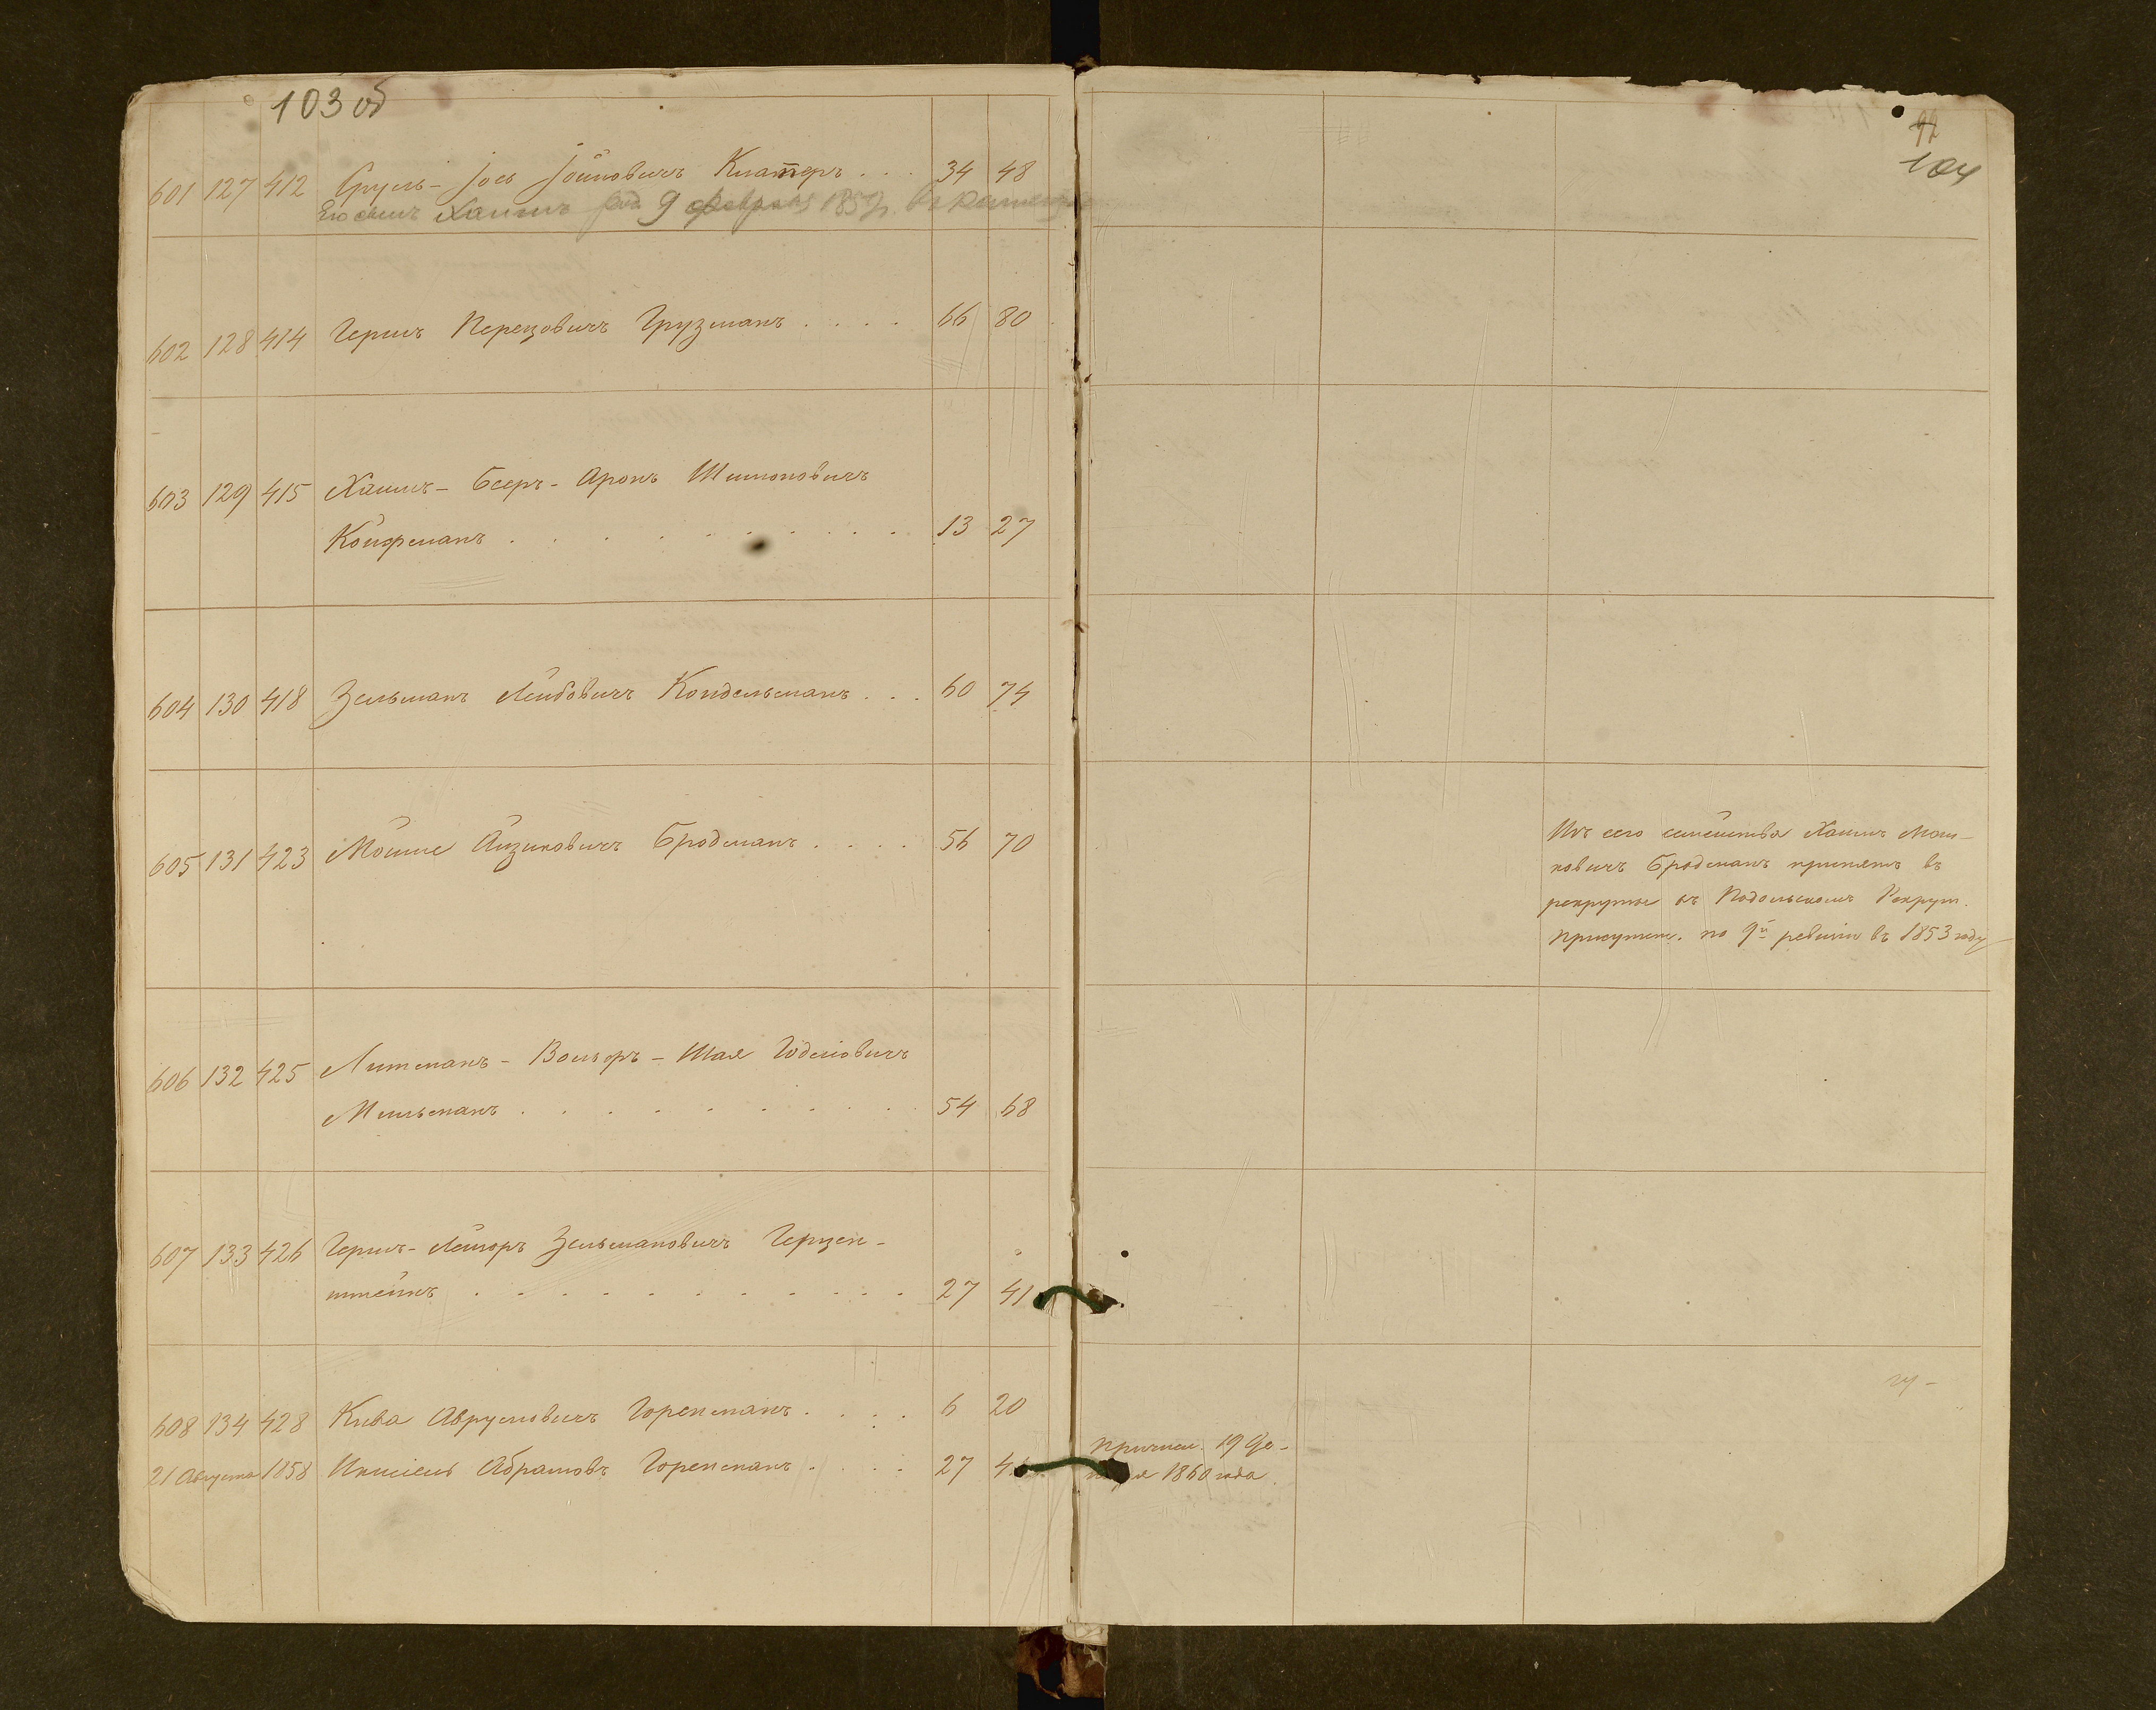 103 об
601 127 412 Сруль- Іось Іойновичъ Кнатеръ . . . 34 48
Его сынъ Хаимъ род 9 февраля 1857 г. въ
602 128 414 Гершъ Перецовичъ Грузманъ . . . . 66 80
603 129 415 Хаимъ- Бееръ- Аронъ Шимоновичъ
Койфманъ . . . . . . . . . 13 27
604 130 418 Зельманъ Лейбовичъ Кондельманъ . . . 60 74
605 131 423 Мойше Айзиковичъ Бродманъ . . . . 56 70
606 132 425 Литманъ - Вольфъ - Шая Годелиовичъ
Мильманъ . . . . . . . . . 54 68
607 133 426 Гершъ- Лейзоръ Зельмановичъ Герцен-
штейнъ . . . . . . . . . . 27 41
608 134 428 Кива Аврумовичъ Горенманъ . . . . 6 20
21 Августа 1858 Икисіель Абрамовъ Горенманъ . . . . 27
92
104
Изъ сего семейства Хаимъ Мош-
ковичъ Бродманъ принятъ въ
рекруты въ Подольскомъ Рекрут.
присутств. по 9й ревизіи въ 1853 году
Причисл. 19 Де-
1860 года.